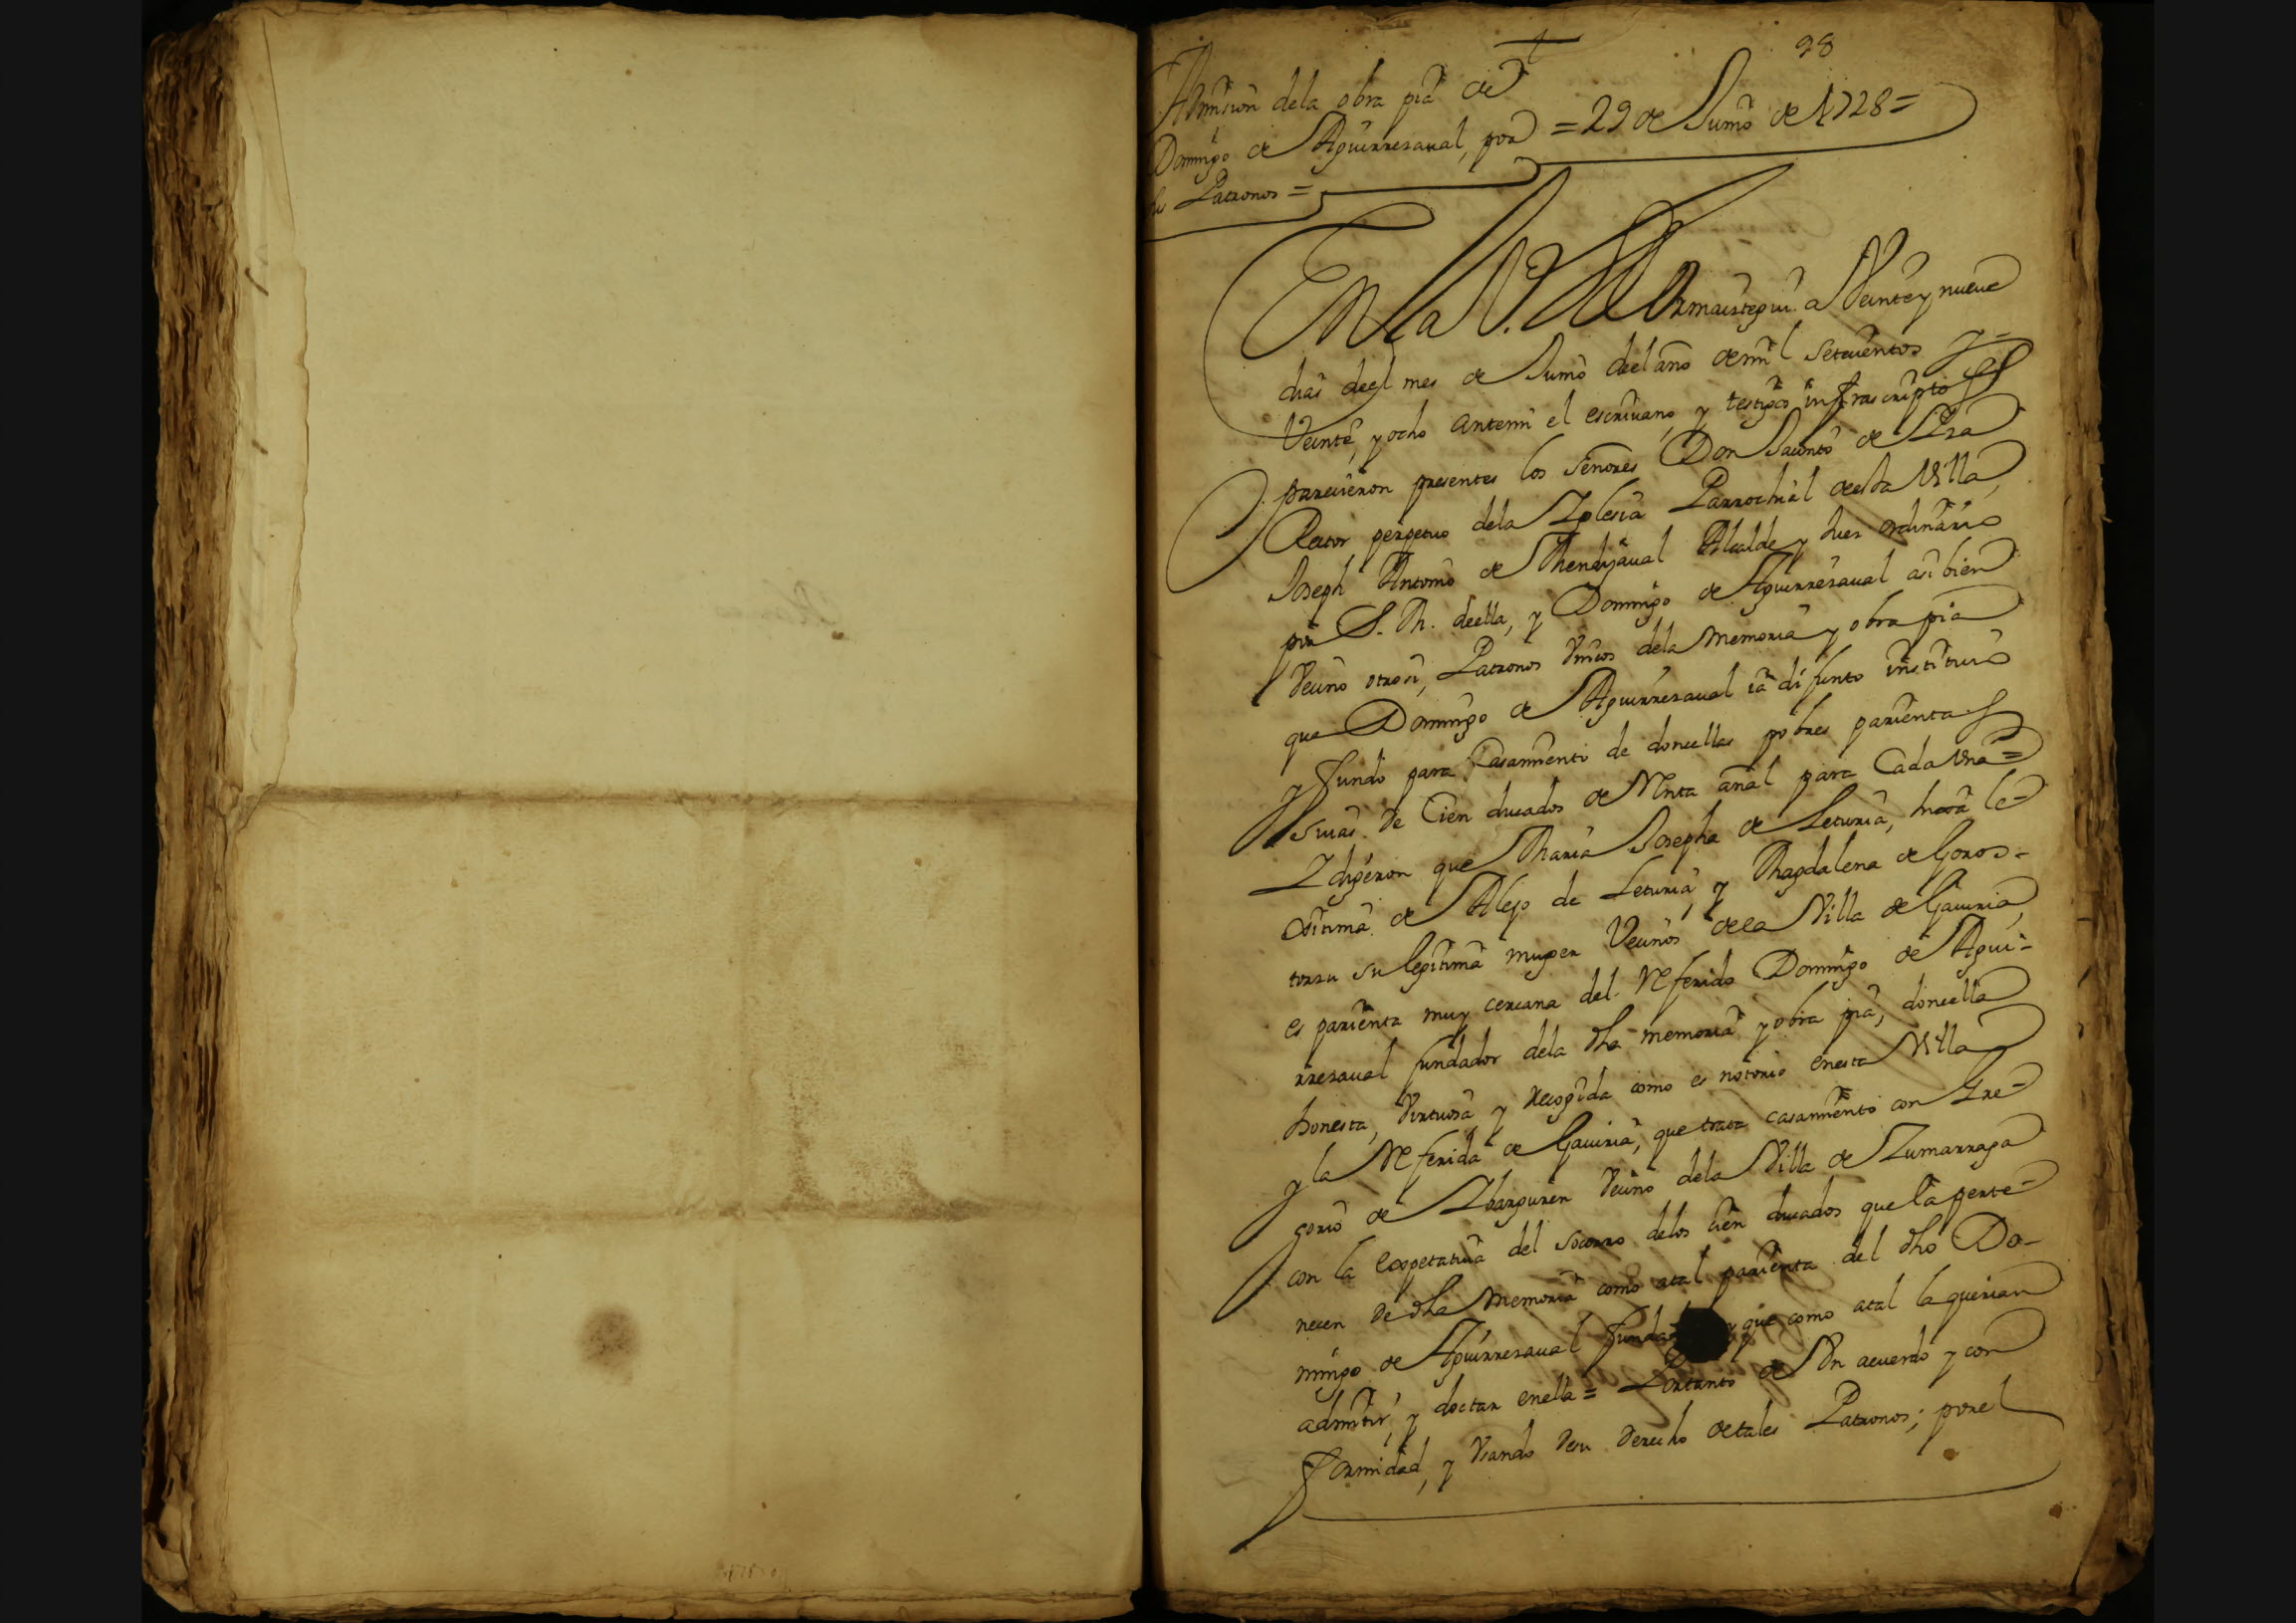 98
Admision dela obra pia de
Domingo de Aguirrezaual, por = 29 de Junio de 1728 =
sus Patronos =
En la V. de Ormaiztegui a Veinte y nueue
dias deel mes de Junio deel año de mil setecientos y
Veinte, y ocho ante mi el escriuano, y testigos infrascriptos
parecieron presentes los señores Don Jacinto de
Rector perpetuo dela Iglesia Parrochial deesta Villa,
Joseph Antonio de Mendizaual Alcalde y Juez ordinario
por S. M. deella, y Domingo de Aguirrezaual asi bien
Vecino otrosi, Patronos Vnicos dela Memoria y obra pia
que Domingo de Aguirrezaual ia difunto instituio
y fundo para Casamiento de doncellas pobres parientas
suias de Cien ducados de Renta anal para Cada Vna =
I digeron que Maria Josepha de Leturia, hixa le-
xitima de Alejo de Leturia, y Magdalena de Goros-
torzu su legitima muger Vecinos dela Villa de Gauiria,
es parienta muy cercana del Referido Domingo de Agui-
rrezaual fundador dela dha memoria y obra pia, doncella
honesta, Virtuosa y recogida como es notorio enesta Villa
y la Referida de Gauiria, que trata casamiento con Gre-
gorio de Ibarguren Vecino dela Villa de Zumarraga
con la expetatiua del socorro delos cien ducados que la perte-
necen de dha Memoria como atal parienta del dho Do-
mingo de Aguirrezaual que como atal la querian
admitir, y doctar enella = Portanto de Vn acuerdo y con
formidad, y Vsando desu derecho detales Patronos; porel